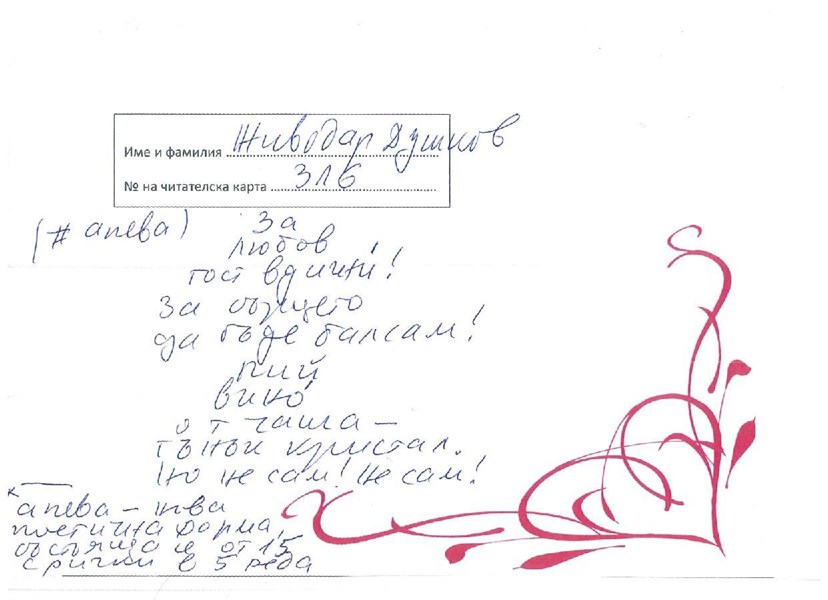 Име и фамилия Живодар Душков
№ на читателска карта 316
(# апева)
За
любов
тост вдигни!
За сърцето
да бъде балсам!
Пий
вино
от чаша –
тънък кристал.
Но не сам! Не сам!
апева – нова
поетична форма,
състояща се от 15
срички в 5 реда